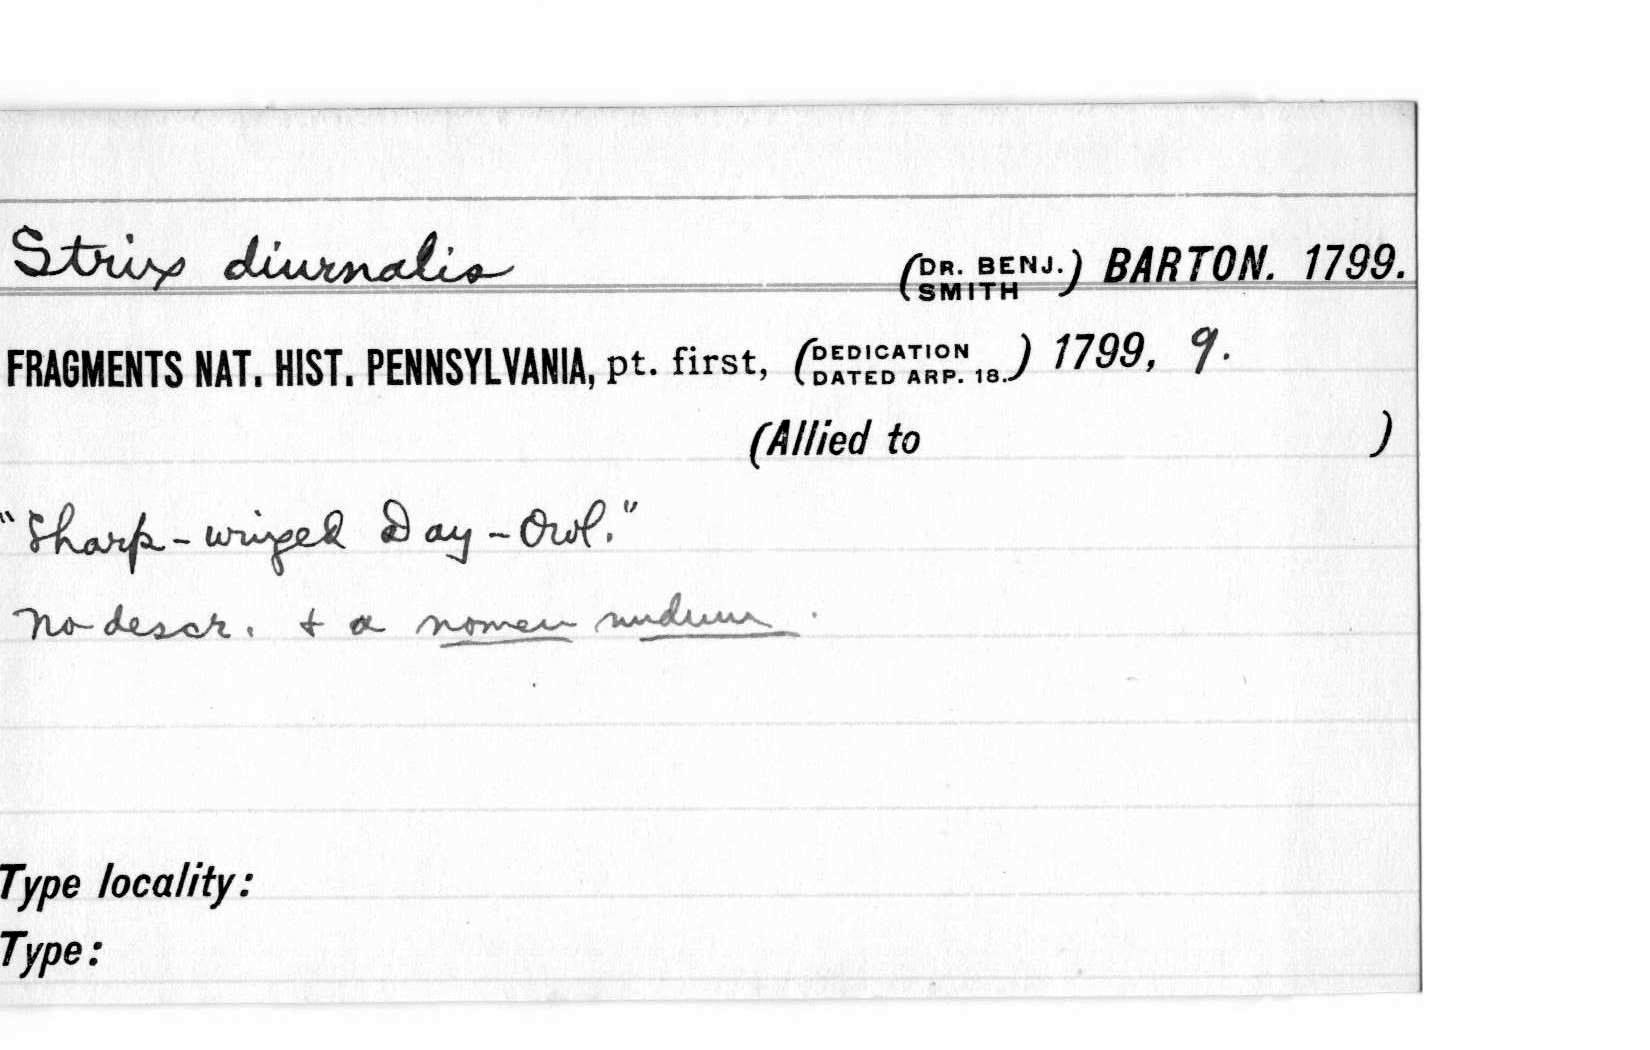 Strix diurnalis (DR. BENJ. SMITH) BARTON. 1799.
FRAGMENTS NAT. HIST. PENNSYLVANIA, pt. first, (DEDICATION DATED ARP. 18.) 1799, 9.
(Allied to )
"Sharp-winged Day-Owl."
No descr. & a nomen nudum.
Type locality:
Type: